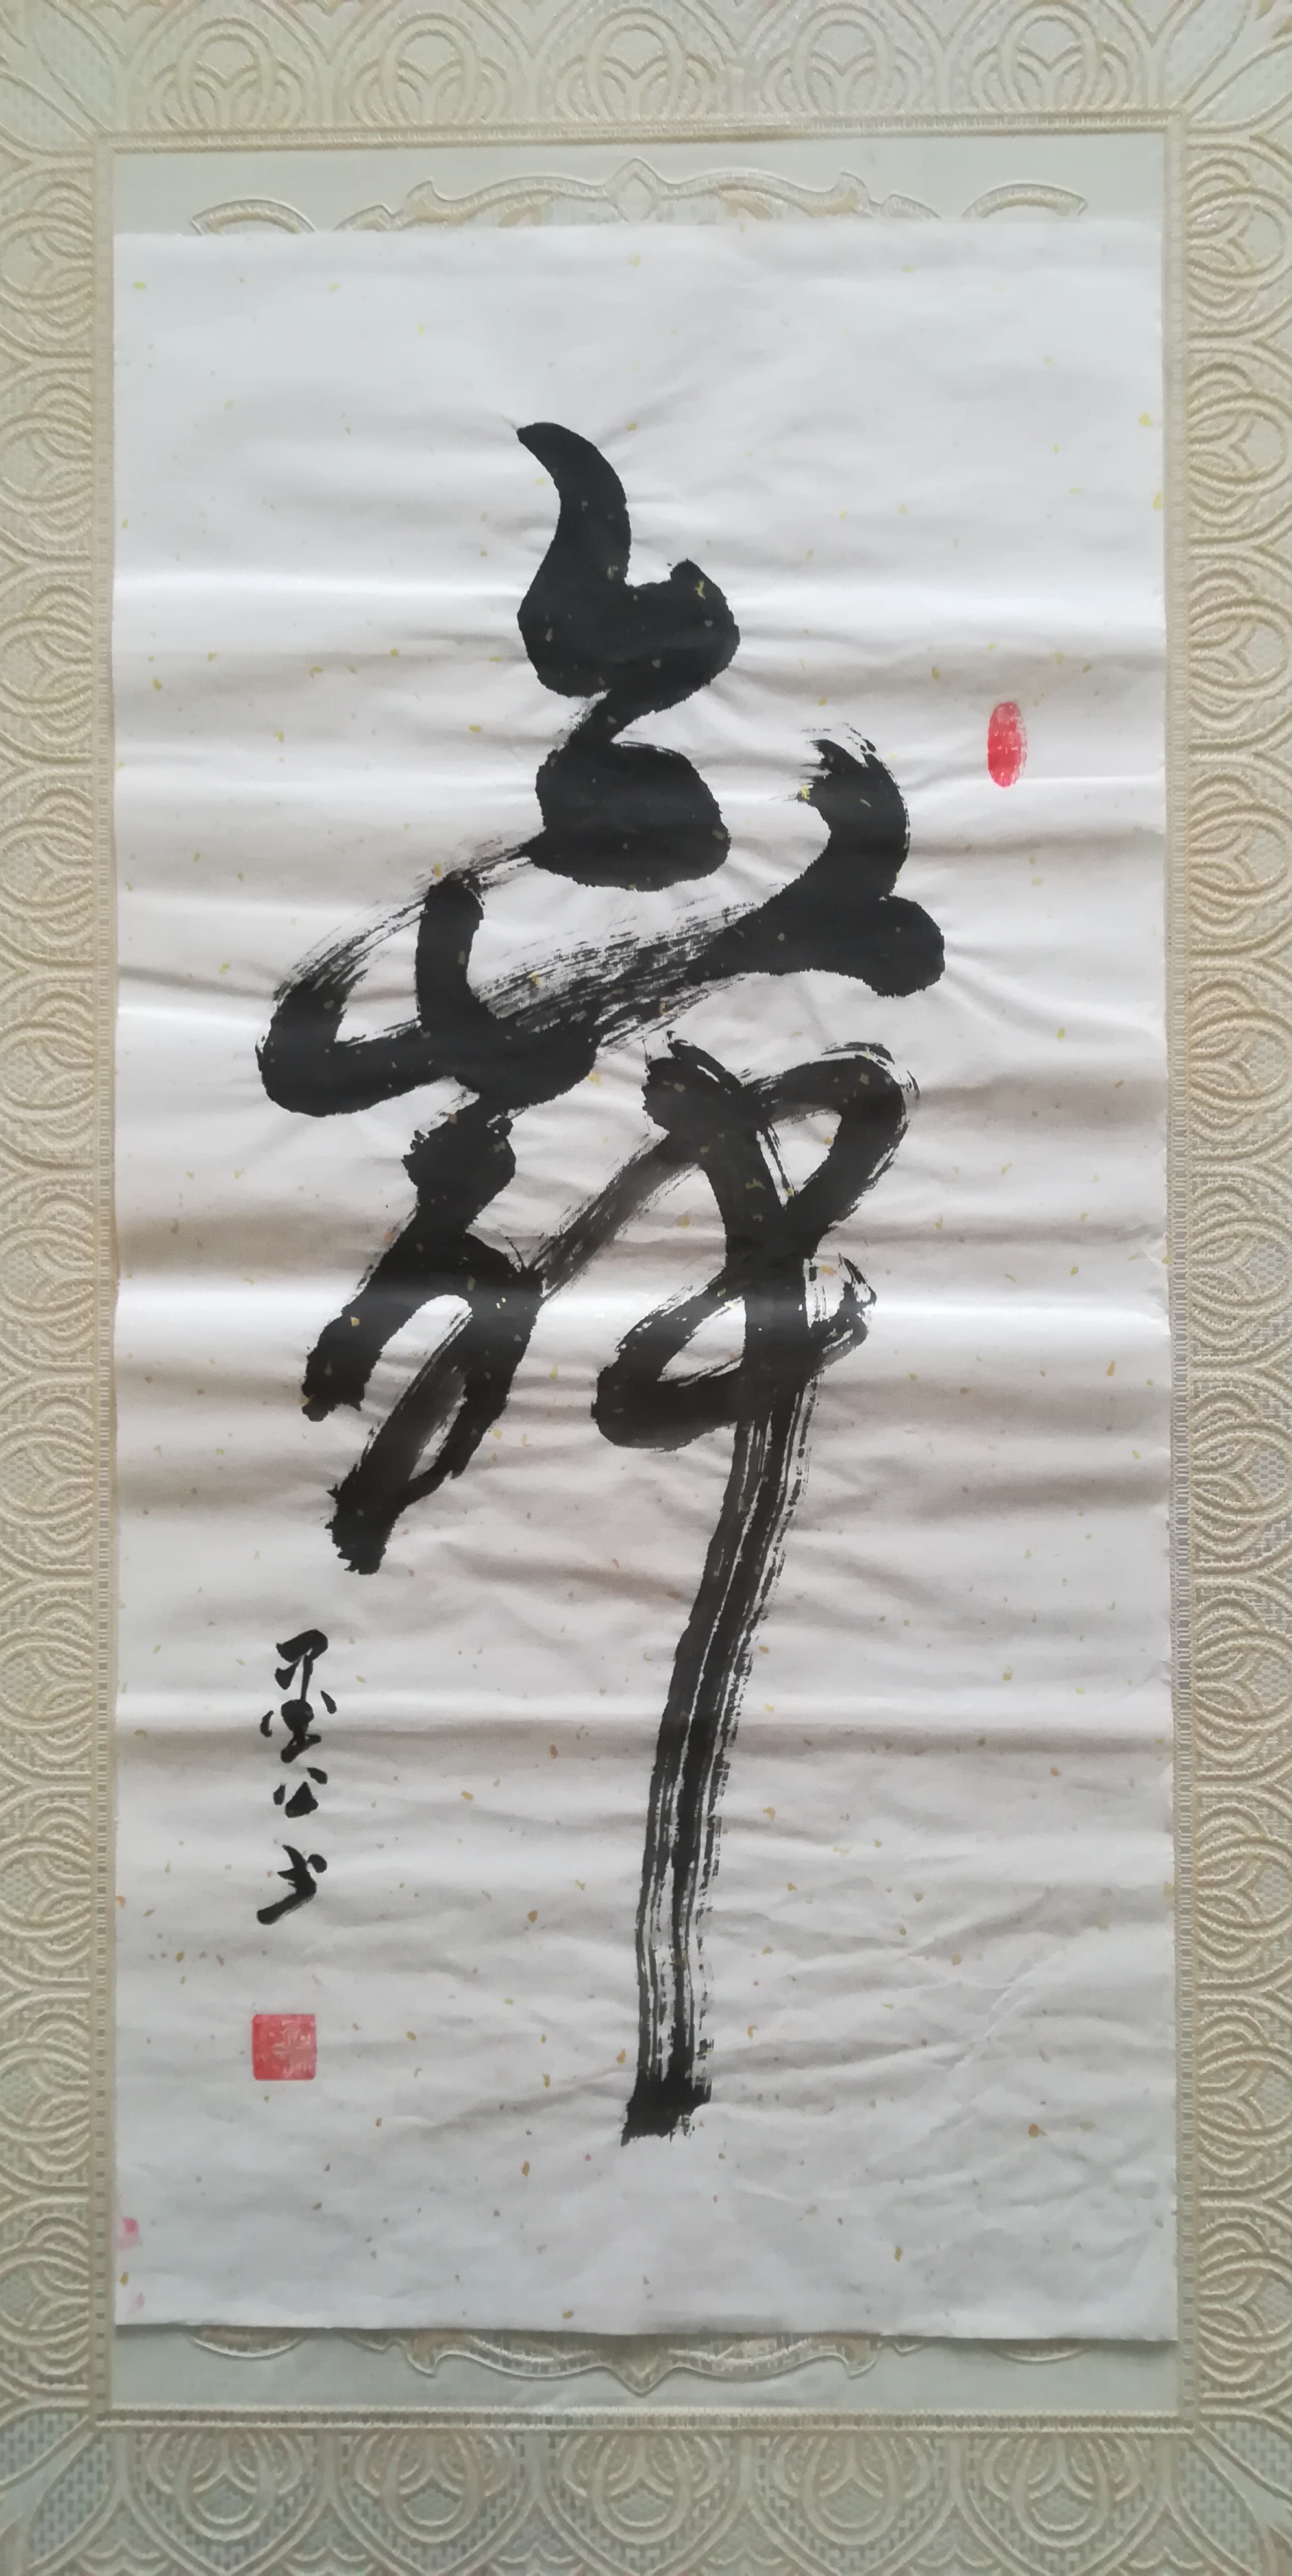 舞
墨公书